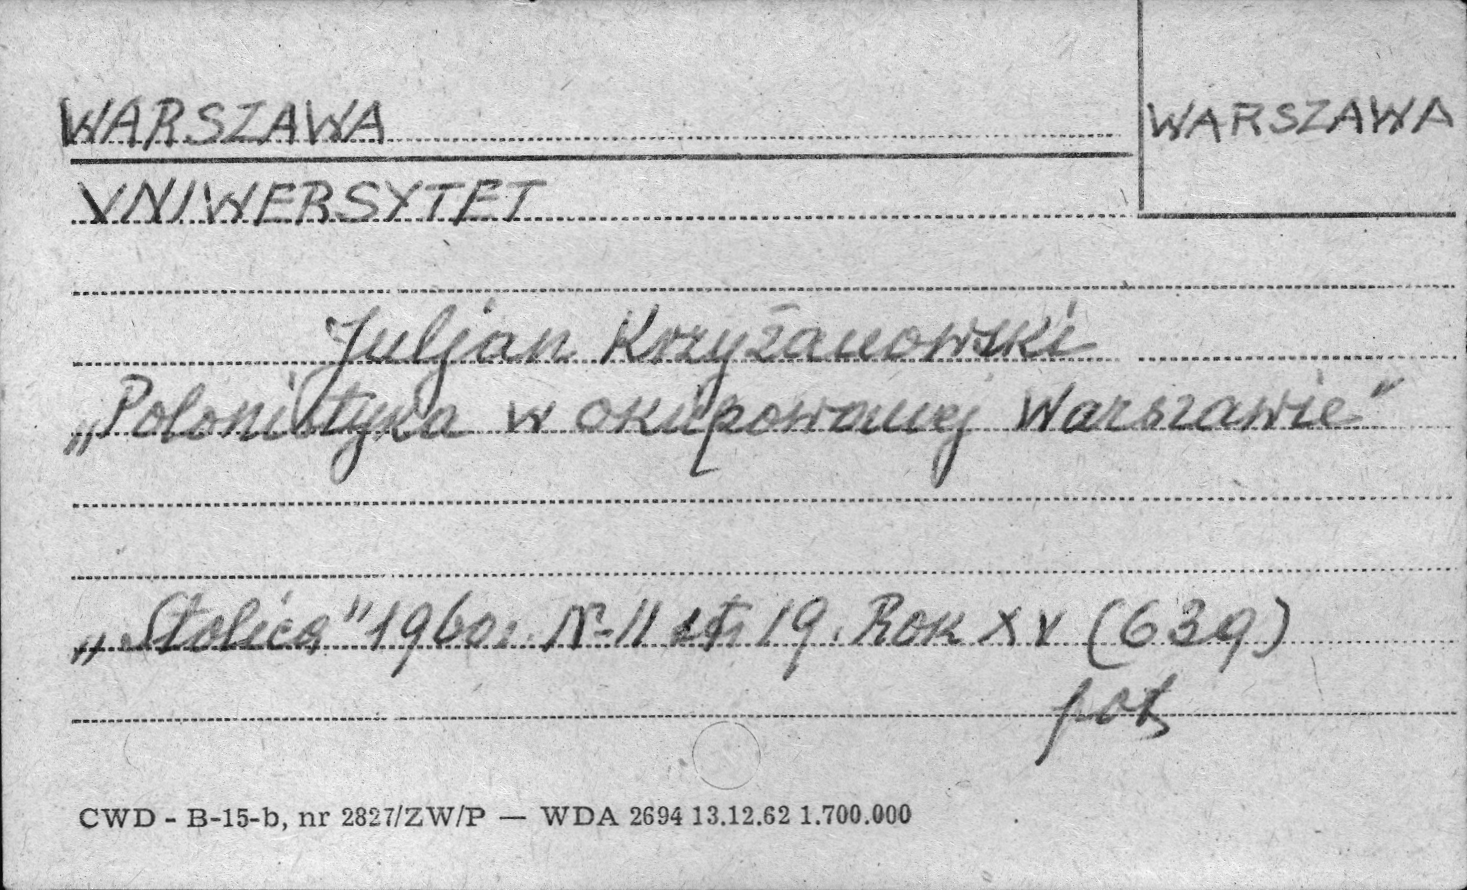 WARSZAWA
WARSZAWA
UNIWERSYTET
Juljan Krzyżanowski
„Polonistyka w okupowanej Warszawie"
„Stolica" 1960r. Nr 11 str 19. Rok XV (639)
CWD - B-15-b, nr 2827/ZW/P — WDA 2694 13.12.62 1.700.000